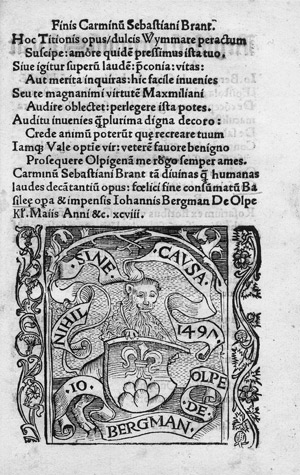 Finis Carminū Sebastiani Brant.
Hoc Titionis opus/dulcis Wymmare peractum
Suscipe: amōre quidē pressimus ista tuo.
Siue igitur superū laudē: pconia: vitas:
Aut merita inquiras: hic facile inuenies
Seu te magnanimi virtutē Maxmiliani
Audire oblectet: perlegere ista potes.
Auditu inuenies q̄plurima digna decoro:
Crede animū poterūt quę recreare tuum
Iamq; Vale optie vir: veterē fauore benigno
Prosequere Olpigenā me rogo semper ames.
Carminū Sebastiani Brant tā diuinas q̄ humanas
laudes decātantiū opus: fœlici fine consūmatū Ba
sileę opa & impensis Iohannis Bergman De Olpe
Kl. Maiis Anni &c. xcviii.
NIHIL SINE CAVSA.
1497
IO BERGMAN. DE OLPE